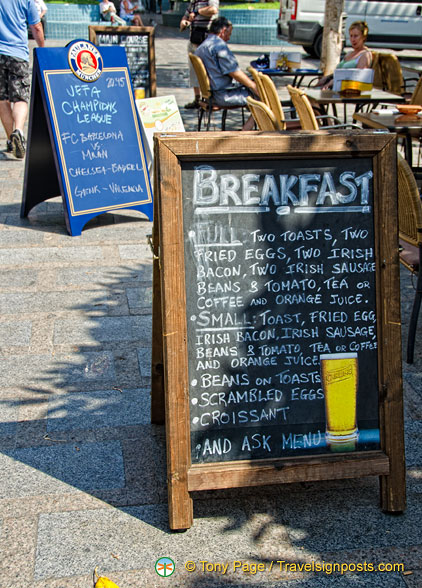 MAIN COURSE
PAULANER
MÜNCHEN
20:45
UEFA
CHAMPIONS LEAGUE
FC BARCELONA
VS
MILAN
CHELSEA-BAYER L
GENK - VALENCIA
BREAKFAST
• FULL: TWO TOASTS, TWO
FRIED EGGS, TWO IRISH
BACON, TWO IRISH SAUSAGE
BEANS & TOMATO, TEA OR
COFFEE AND ORANGE JUICE.
• SMALL: TOAST, FRIED EGG,
IRISH BACON, IRISH SAUSAGE,
BEANS & TOMATO, TEA OR COFFEE
AND ORANGE JUICE
• BEANS ON TOASTS
• SCRAMBLED EGGS
• CROISSANT
• AND ASK MENU
© Tony Page / Travelsignposts.com